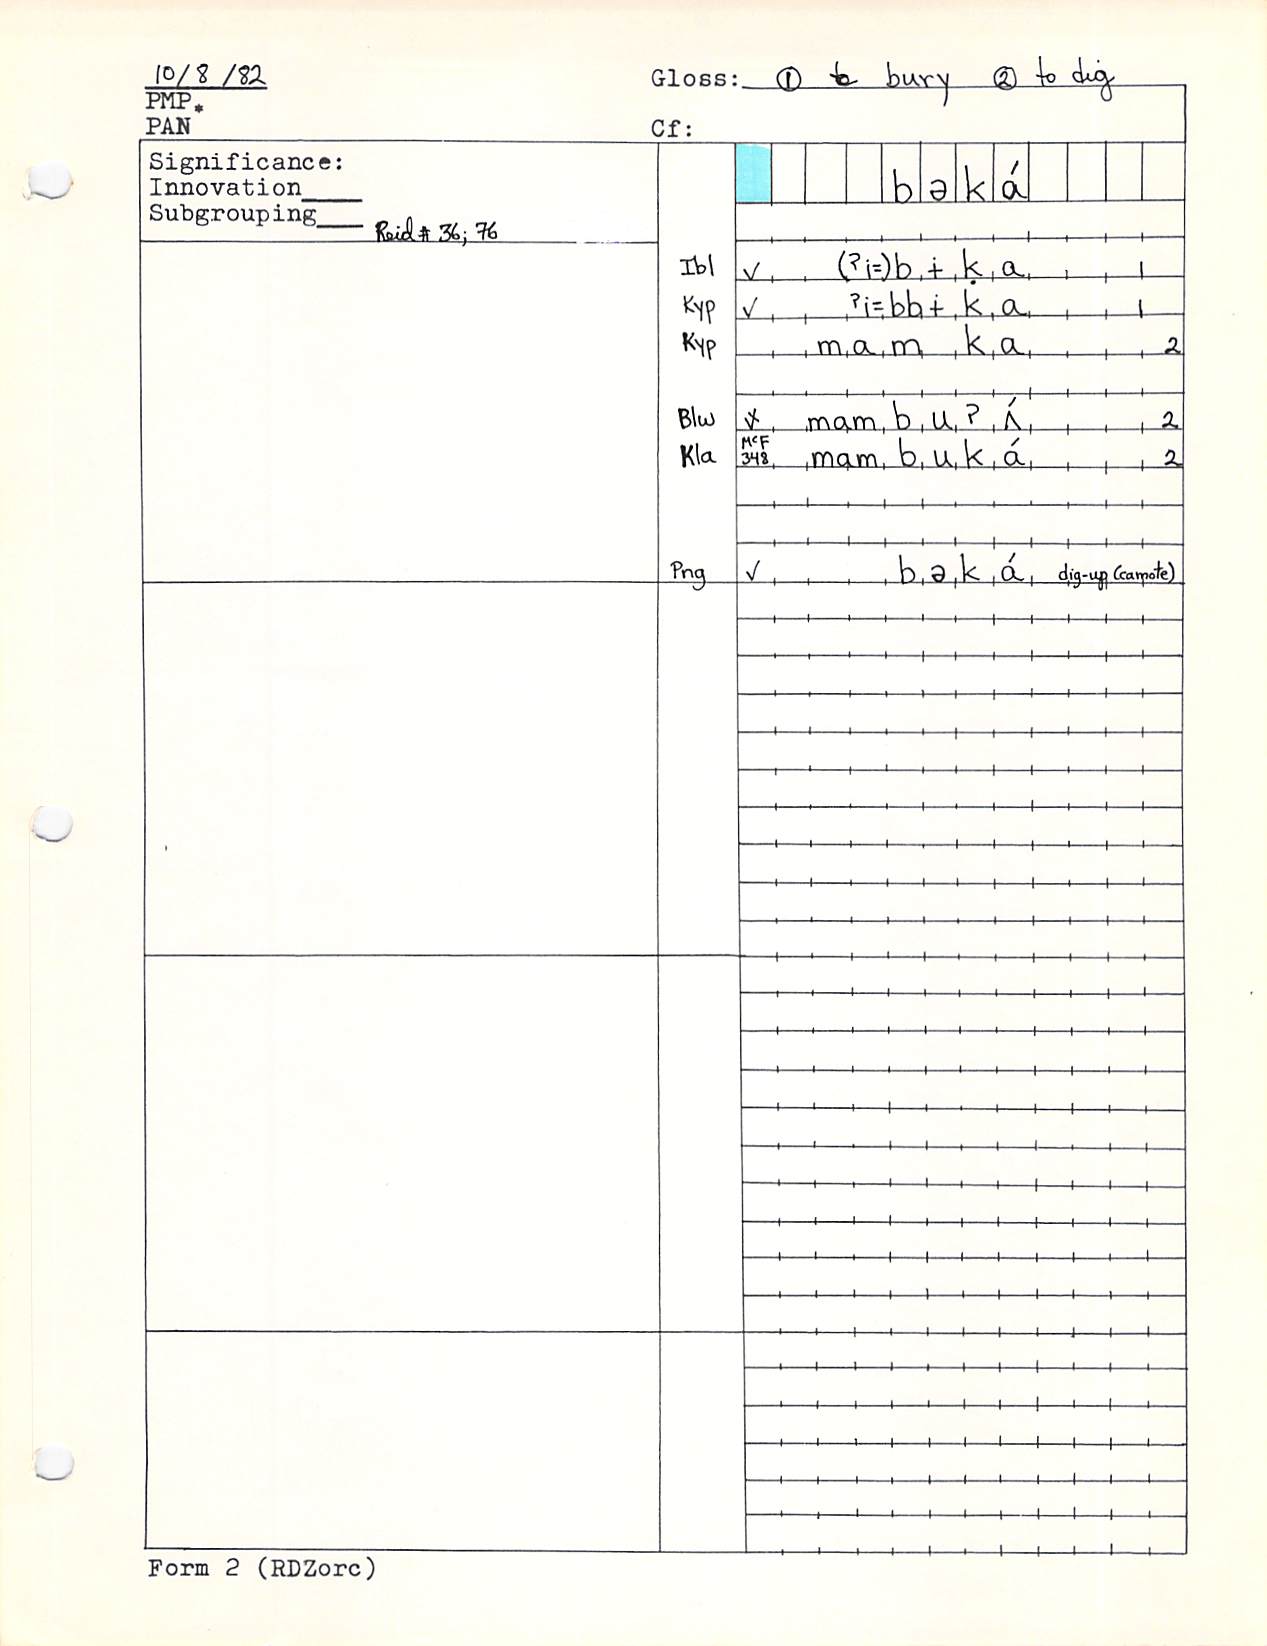 10/8/82 Gloss: ① to bury ② to dig
PMP*
PAN Cf:
Significance:
Innovation____
Subgrouping___ Reid # 36; 76
bəká
Ibl ✓ (ʔi=)bɨḳa 1
Kyp ✓ ʔi=bbɨka 1
Kyp mamka 2
Blw ✓ mambuʔʌ́ 2
Kla McF 348 mambuká 2
Png ✓ bəká dig-up (camote)
Form 2 (RDZorc)